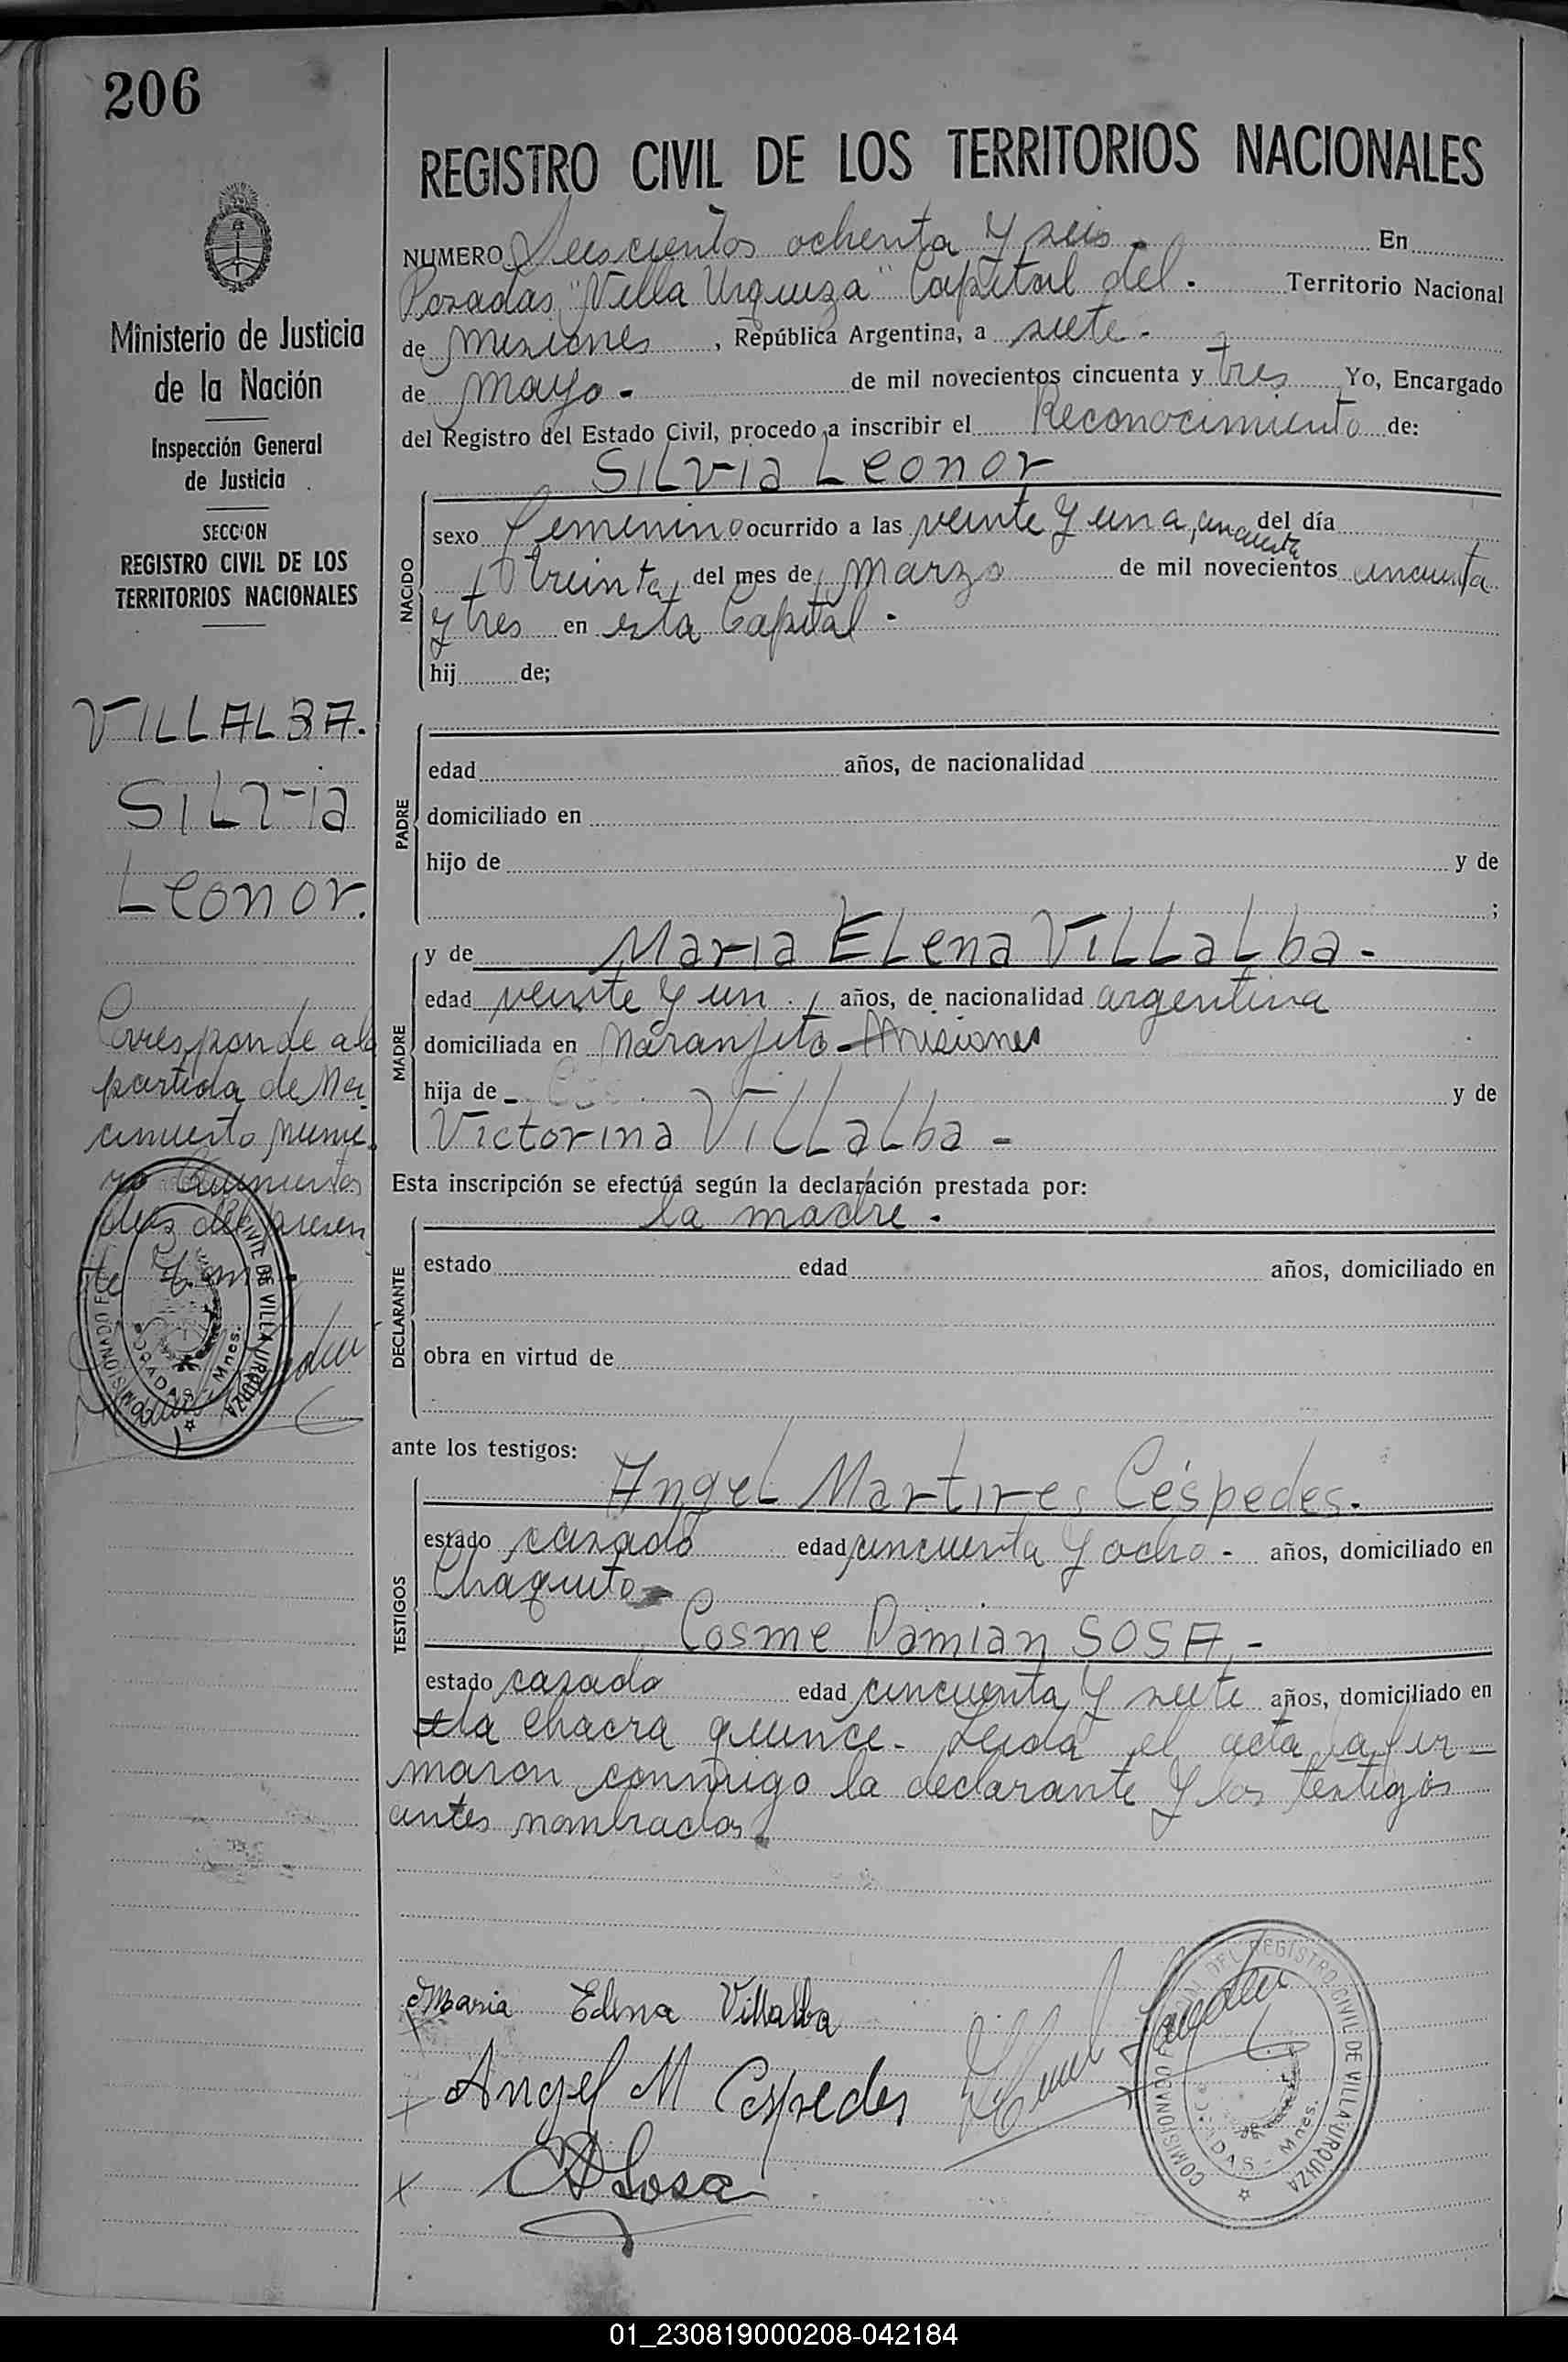 206
REGISTRO CIVIL DE LOS TERRITORIOS NACIONALES
Ministerio de Justicia
de la Nación
Inspección General
de Justicia
SECCION
REGISTRO CIVIL DE LOS
TERRITORIOS NACIONALES
VILLALBA.
SILVIA
Leonor.
Corresponde a la
partida de Na
cimiento núme
ro Quinientos
dos del presen
te
NUMERO Seiscientos ochenta y seis. En
Posadas, "Villa Urquiza" Capital del. Territorio Nacional
de Misiones, República Argentina, a siete.
de mayo. de mil novecientos cincuenta y tres Yo, Encargado
del Registro del Estado Civil, procedo a inscribir el Reconocimiento de:
SILVIA Leonor
NACIDO
sexo femenino ocurrido a las veinte y una, cincuenta del día
treinta, del mes de marzo de mil novecientos cincuenta
y tres en esta Capital.
hij de;
PADRE
edad años, de nacionalidad
domiciliado en
hijo de y de
;
MADRE
y de Maria ELena ViLLaLba.-
edad veinte y un. años, de nacionalidad argentina
domiciliada en Naranjito - Misiones
hija de - y de
Victorina ViLLaLba -
Esta inscripción se efectúa según la declaración prestada por:
DECLARANTE
la madre.
estado edad años, domiciliado en
obra en virtud de
ante los testigos:
TESTIGOS
Angel Martires Céspedes.
estado casado edad cincuenta y ocho - años, domiciliado en
Chaquito
Cosme Damian SOSA,-
estado casado edad cincuenta y siete años, domiciliado en
la chacra quince. Leida el acta la fir-
maron conmigo la declarante y los testigos
antes nombrados.
Maria Elena Villalba
Angel M Cespedes
CDSosa
COMISIONADO DEL REGISTRO CIVIL DE VILLA URQUIZA
POSADAS - Mnes.
01_230819000208-042184